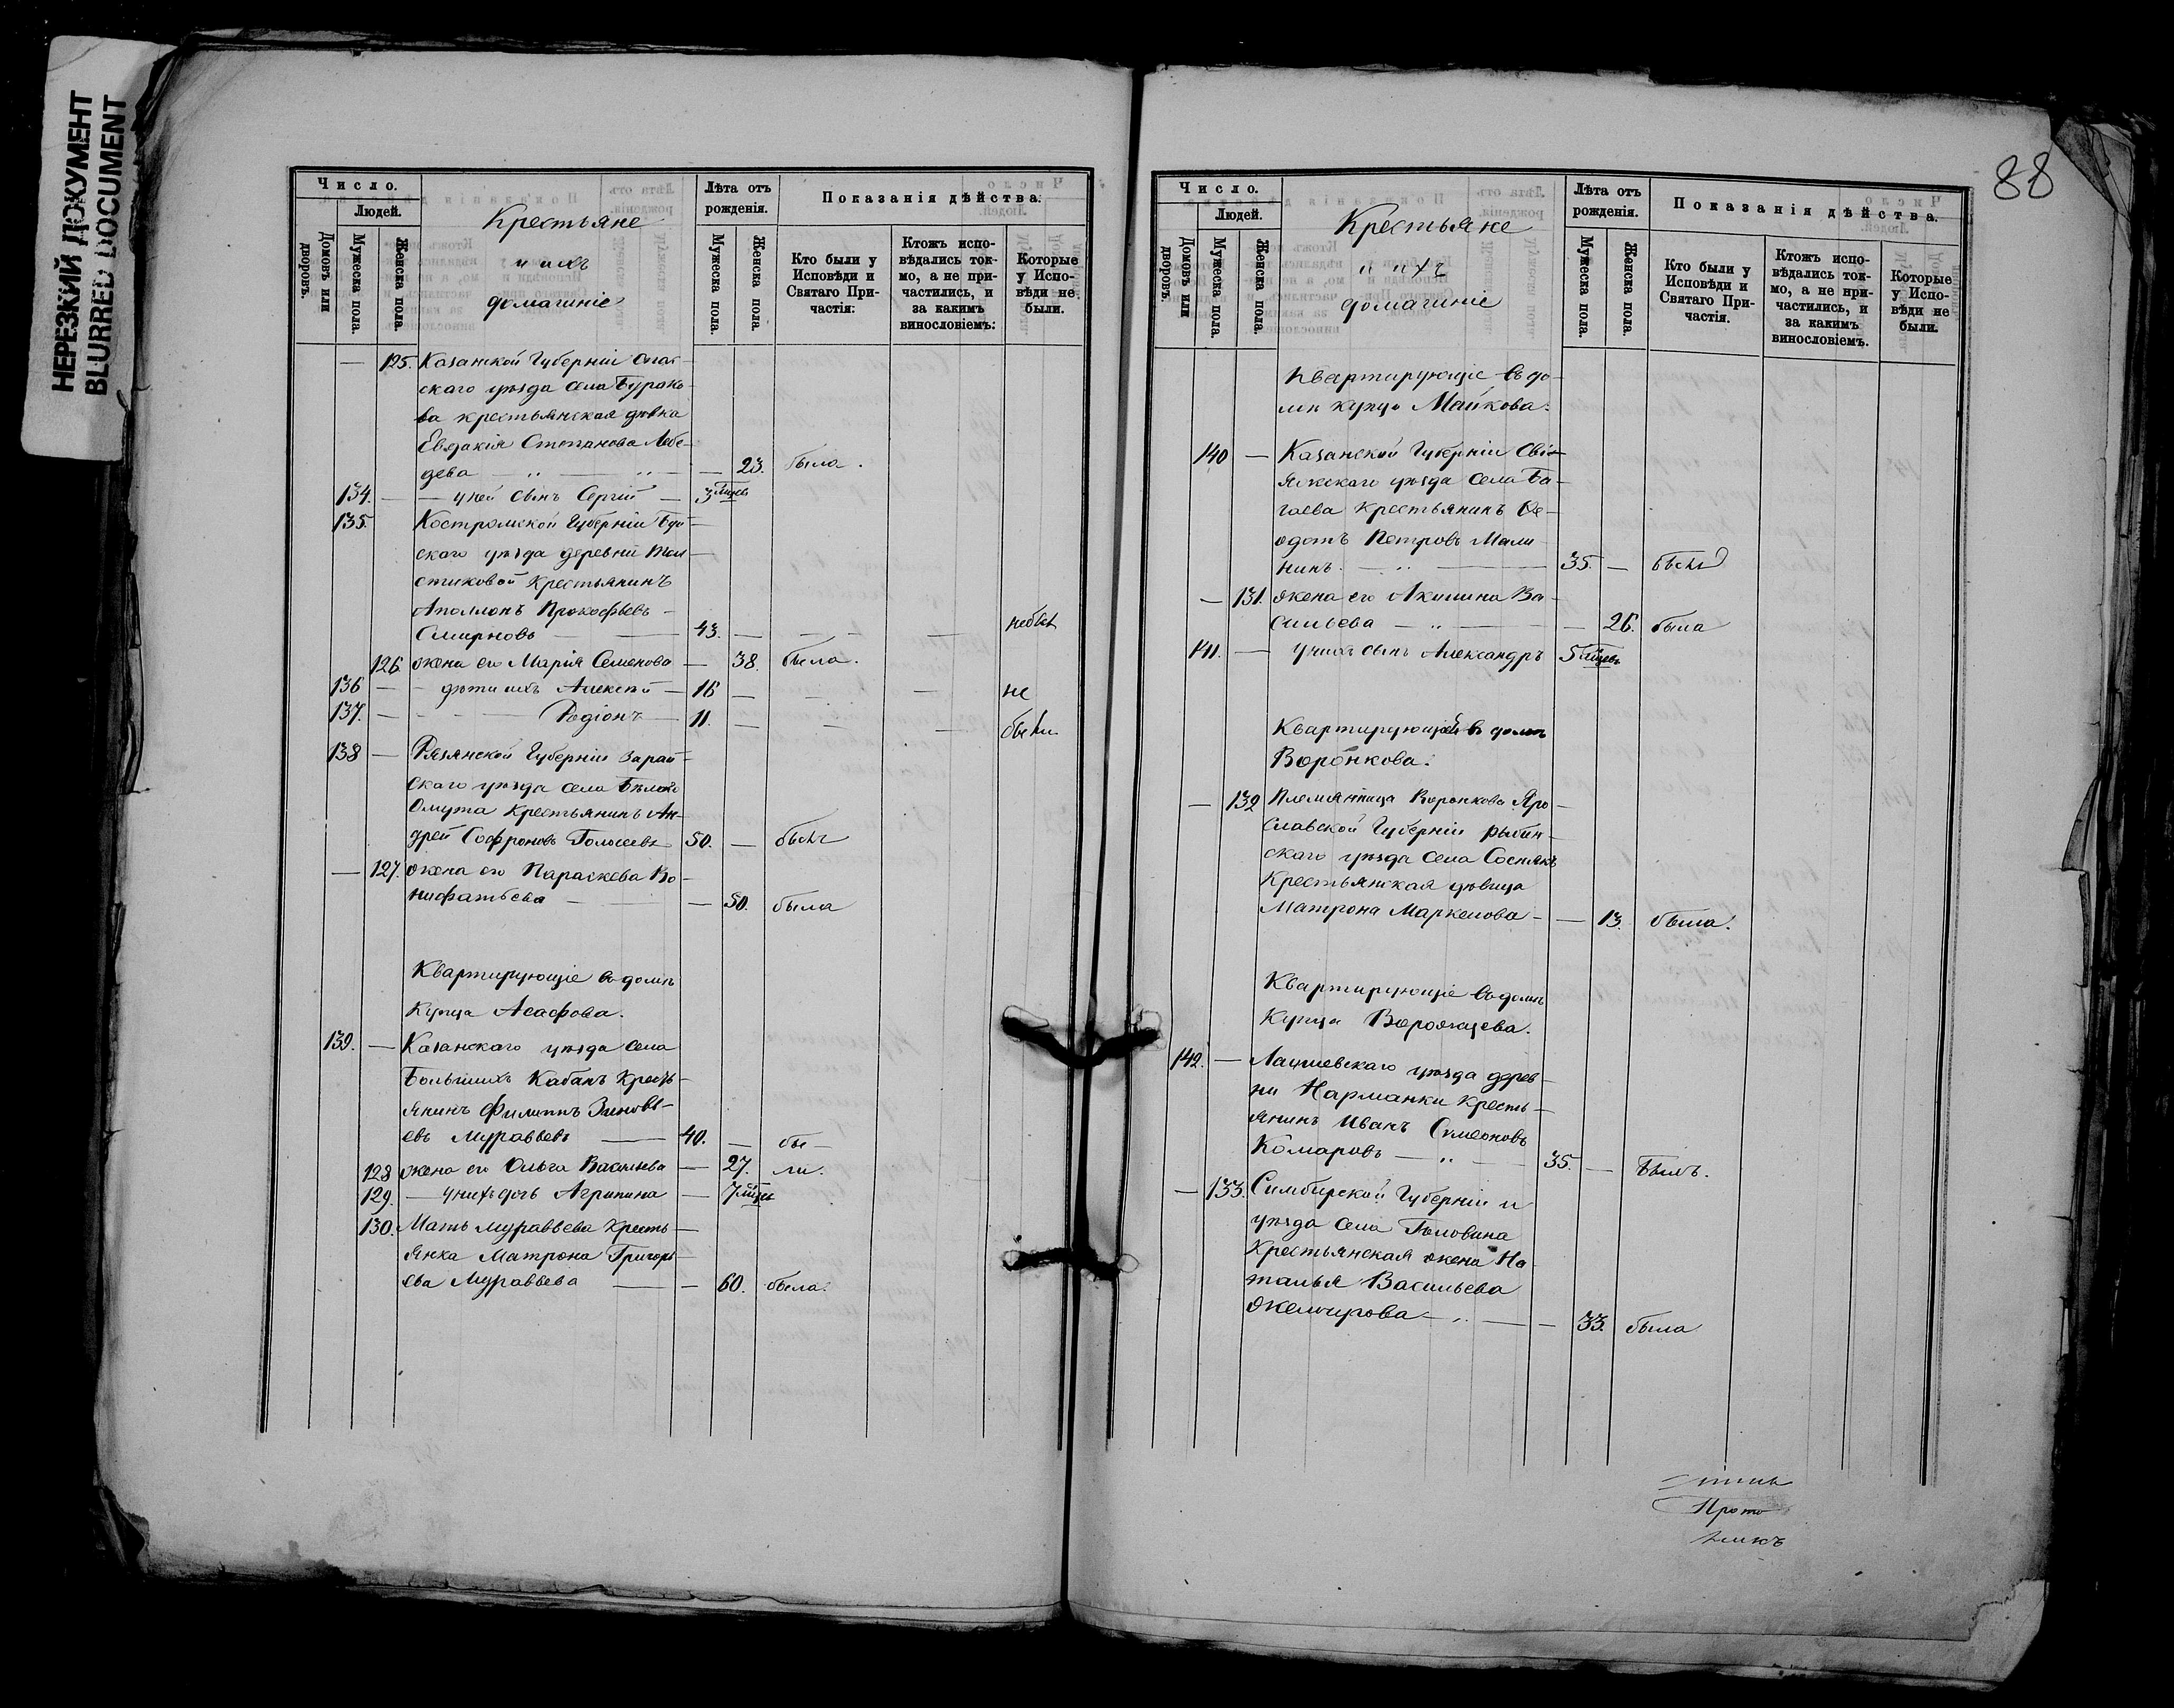 НЕРЕЗКИЙ ДОКУМЕНТ
BLURRED DOCUMENT
Число.
Людей.
Домовъ или дворовъ.
Мужеска пола.
Женска пола.
Крестьяне
и ихъ
домашніе
Лѣта отъ рожденія.
Мужеска пола.
Женска пола.
Показанія дѣйства.
Кто были у Исповѣди и Святаго Причастія:
Ктожъ испо-
вѣдались ток-
мо, а не при-
частились, и
за какимъ
винословіемъ:
Которые
у Испо-
вѣди не
были.
— 125. Казанской Губерніи Спас-
скаго уѣзда села Бурако-
ва крестьянская дѣвка
Евдокія Степанова Лебе-
дева — „ — „ — — 23. была.
134. — — у ней сынъ Сергій — 3
135. Костромской Губерніи Буй-
скаго уѣзда деревни
стиковой крестьянинъ
Аполлонъ Прокофьевъ —
Смирновъ — — 43. — — — — небылъ
126. жена его Марія Семенова — 38. была.
136 — — дѣти ихъ Алексѣй — 16 — — — не
137. — — — Родіонъ — 11. — — — были
138 — Рязанской Губерніи Зарай-
скаго уѣзда села Бѣлоо
Омута крестьянинъ Ан-
дрей Софроновъ 50. — былъ
— 127. жена его Параскева Во-
нифатьева — — — 50. была
Квартирующіе въ домѣ
Купца Асафова.
139. — Казанскаго уѣзда села
Большихъ Кабанъ Кресть-
янинъ Филиппъ Зиновь-
евъ Муравьевъ — 40. — бы-
128 жена его Ольга Васильева — 27. ли.
129. — у нихъ дочь Агрипина — 7
130. Мать Муравьева Кресть-
янка Матрона Григорь
ева Муравьева — — 60. была.
88
Число.
Людей.
Домовъ или дворовъ.
Мужеска пола.
Женска пола.
Крестьяне
и ихъ
домашніе
Лѣта отъ рожденія.
Мужеска пола.
Женска пола.
Показанія дѣйства.
Кто были у Исповѣди и Святаго При-
частія.
Ктожъ испо-
вѣдались ток-
мо, а не при-
частились, и
за какимъ
винословіемъ.
Которые
у Испо-
вѣди не
были.
Квартирующіе въ до-
мѣ купца Майкова.
140 — Казанской Губерніи Свія-
яжскаго уѣзда села Ба-
гаева Крестьянинъ Ѳе-
одотъ Петровъ Мали
нинъ. — „ — 35. — былъ
— 131. жена его Акилина Ва-
сильева — „ — — 26. была
141. — у нихъ сынъ Александръ 5
Квартирующей въ домѣ
Воронкова.
— 132 Племянница Воронкова Яро-
славской Губерніи рыбин-
скаго уѣзда села
Крестьянская дѣвица
Матрона Маркелова — — 13. была.
Квартирующіе въ домѣ
Купца Ворожцева.
142. — Лаишевскаго уѣзда дерев-
ни Нарманки Кресть-
янинъ Иванъ Симеоновъ
Комаровъ — „ — 35. — былъ.
— 133. Симбирской Губерніи и
уѣзда села Головина
Крестьянская жена На-
талья Васильева
— „ — — 33. была
Прото